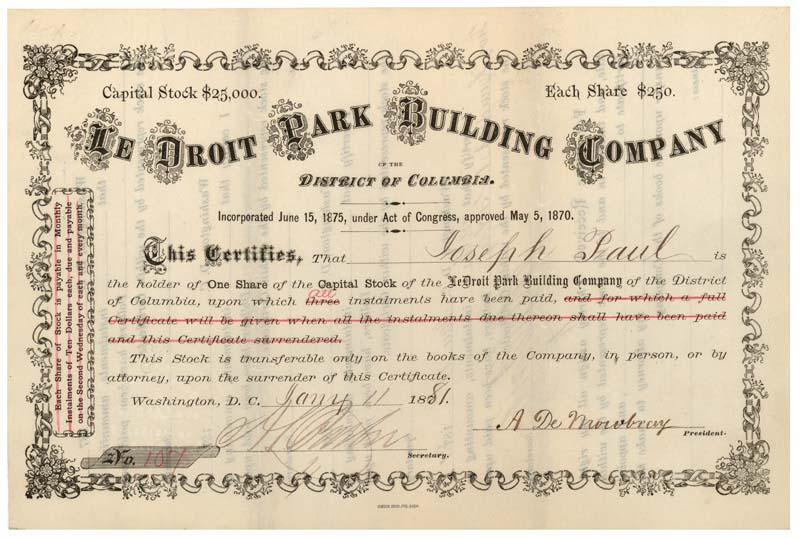 Capital Stock $25,000. Each Share $250.
Le Droit Park Building Company
OF THE
District of Columbia.
Incorporated June 15, 1875, under Act of Congress, approved May 5, 1870.
This Certifies, That Joseph Paul is
the holder of One Share of the Capital Stock of the LeDroit Park Building Company of the District
all
of Columbia, upon which three instalments have been paid, and for which a full
Certificate will be given when all the instalments due thereon shall have been paid
and this Certificate surrendered.
This Stock is transferable only on the books of the Company, in person, or by
attorney, upon the surrender of this Certificate.
Washington, D. C. Jany 11 1881.
A De Mowbray
President.
Secretary.
No. 107
Each Share of Stock is payable in Monthly
Instalments of Ten Dollars each, due and payable
on the Second Wednesday of each and every month.